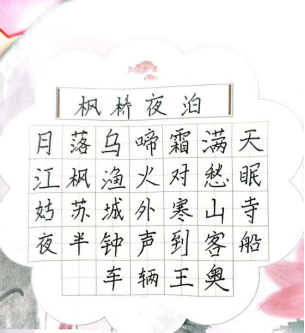 枫桥夜泊
月落乌啼霜满天
江枫渔火对愁眠
姑苏城外寒山寺
夜半钟声到客船
车辆王奥